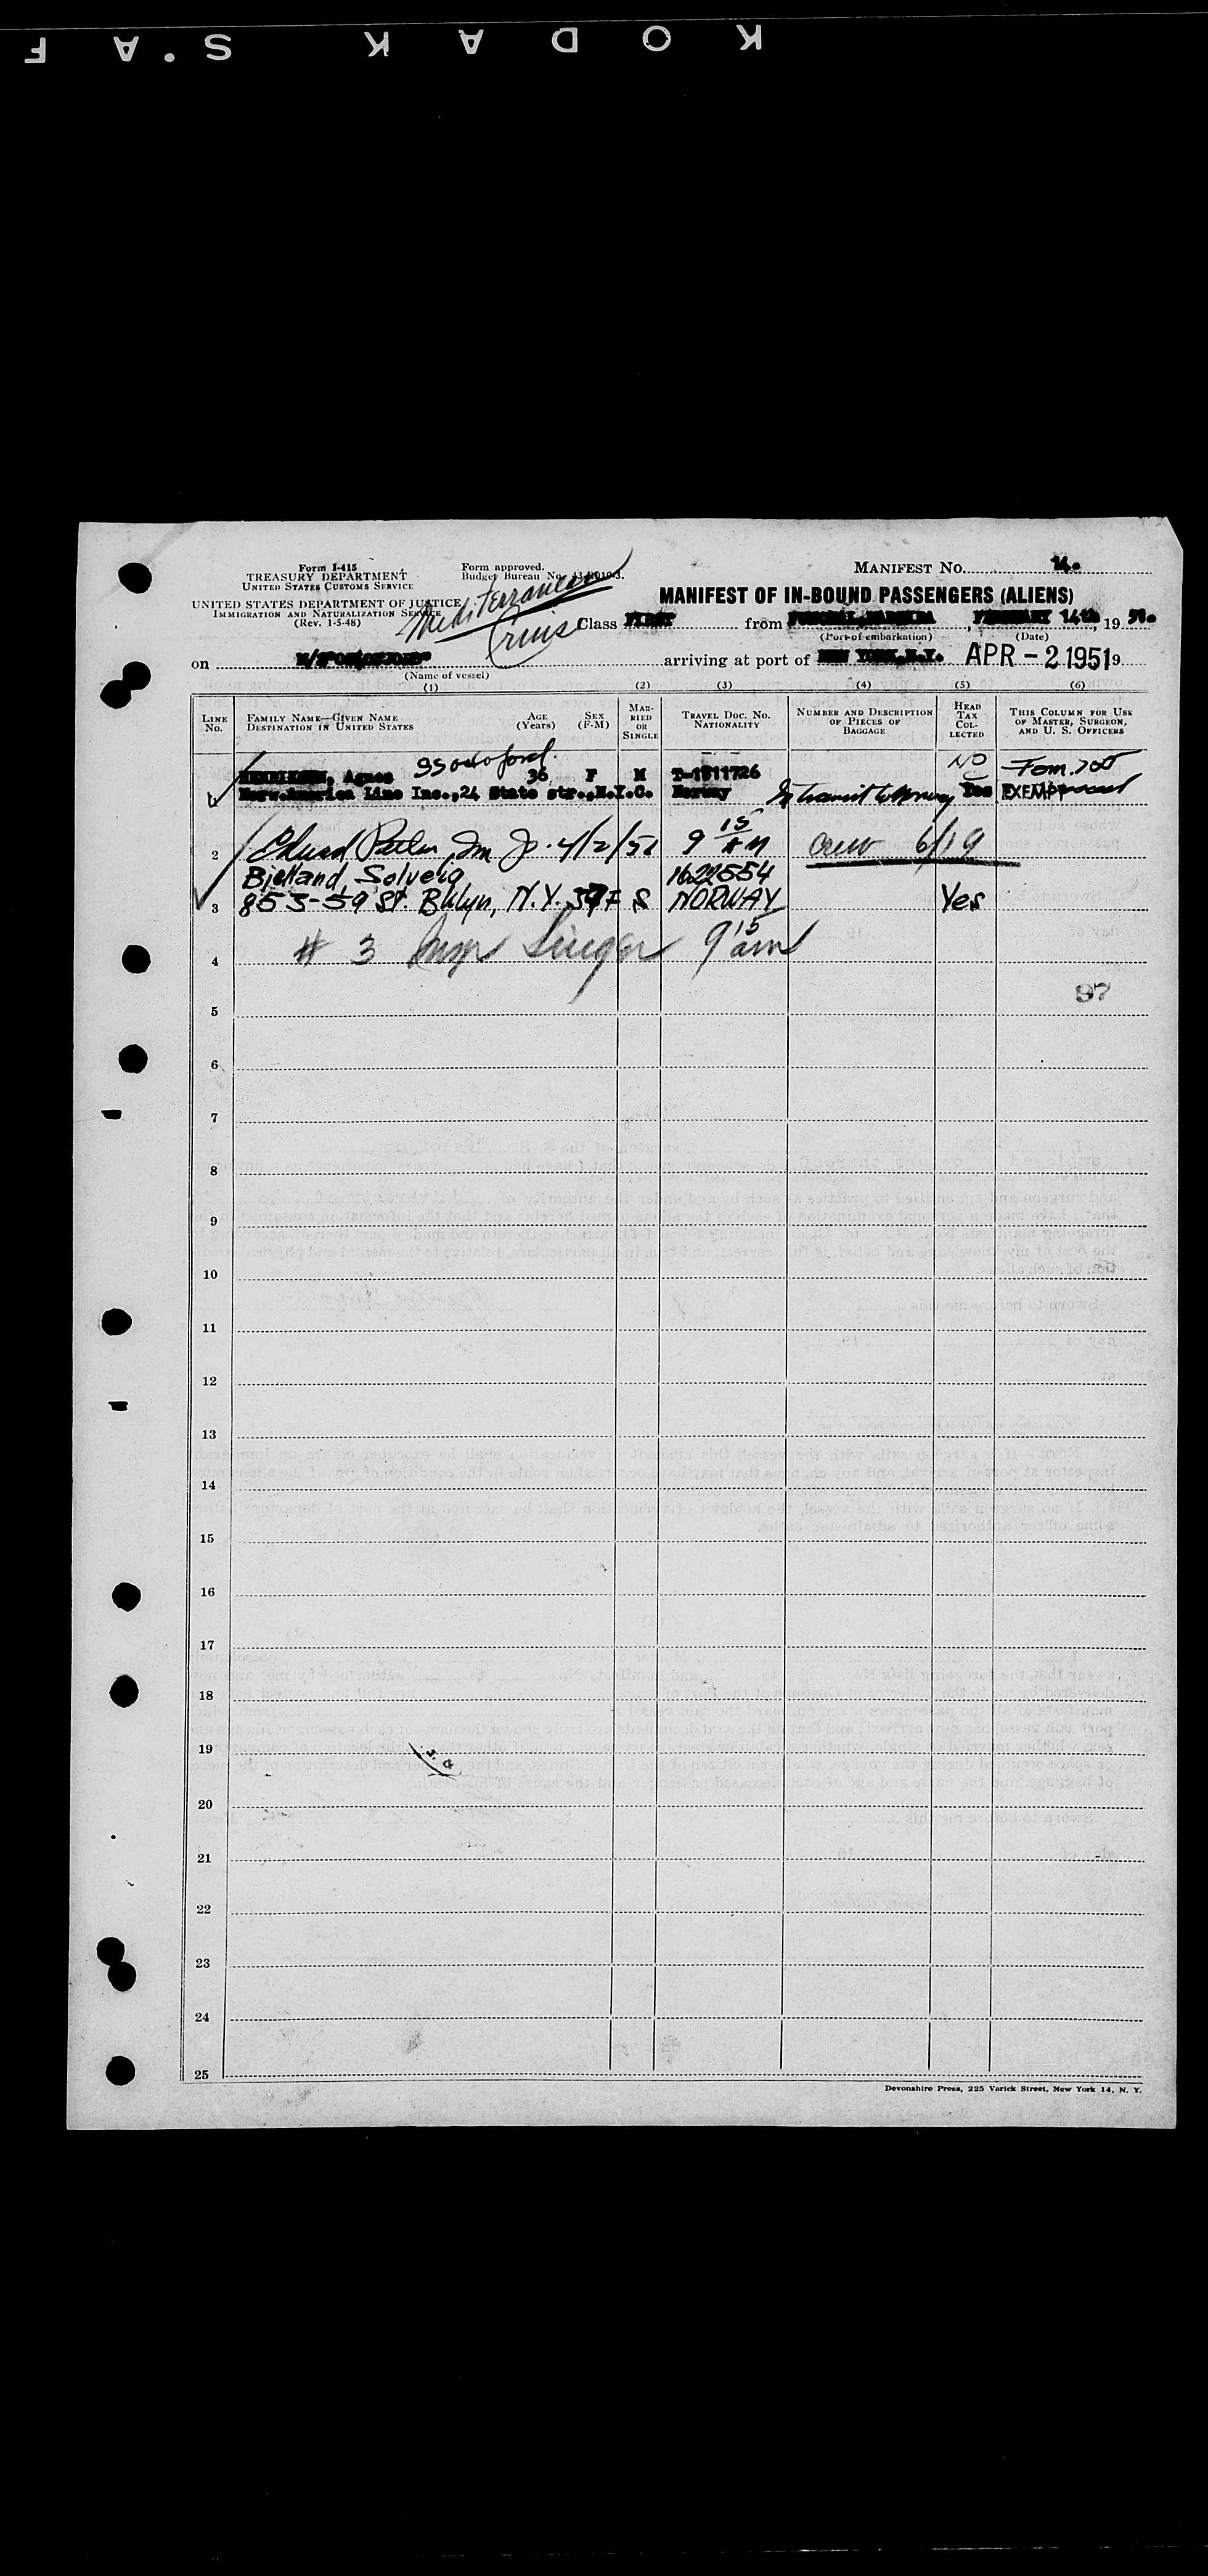 KODAK S.A F
Form I-415
TREASURY DEPARTMENT
UNITED STATES CUSTOMS SERVICE
UNITED STATES DEPARTMENT OF JUSTICE
IMMIGRATION AND NATURALIZATION SERVICE
(Rev. 1-5-48)
Form approved.
Budget Bureau No.
Mediterranean
MANIFEST NO. 14.
MANIFEST OF IN-BOUND PASSENGERS (ALIENS)
Class FIRST from FUNCHAL, MADEIRA, FEBRUARY 14th, 19 51.
(Port of embarkation) (Date)
on arriving at port of NEW YORK, N.Y. APR - 2 1951 9
(Name of vessel)
(1) (2) (3) (4) (5) (6)
LINE NO.
FAMILY NAME—GIVEN NAME
DESTINATION IN UNITED STATES
AGE (Years)
SEX (F-M)
MARRIED OR SINGLE
TRAVEL DOC. NO.
NATIONALITY
NUMBER AND DESCRIPTION OF PIECES OF BAGGAGE
HEAD TAX COLLECTED
THIS COLUMN FOR USE OF MASTER, SURGEON, AND U. S. OFFICERS
NO
Agnes 36 F M T-1811726
Norw. America Line Inc., 24 State str., N.Y.C. Norway In transit to Norway Yes EXEMPT
2 4/2/51 9 15 AM crew 6/19
Bjelland, Solveig 1622554
3 853-59 St. Bklyn, N.Y. F S NORWAY Yes
# 3 Insp Singer 9 15 am
4
97
5
6
7
8
9
10
11
12
13
14
15
16
17
18
19
20
21
22
23
24
25
Devonshire Press, 225 Varick Street, New York 14, N. Y.